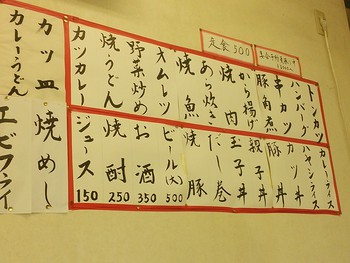 定食 500
トンカツ
ハンバーグ
串カツ
豚角煮
から揚げ
焼肉
あら炊き
焼魚
オムレツ
野菜炒め
焼うどん
カツカレー
カレーライス
ハヤシライス
カツ丼
豚丼
親子丼
玉子丼
だし巻
焼豚
ビール(大) 500
お酒 350
焼酎 250
ジュース 150
カツ皿
カレーうどん
焼めし
エビフライ